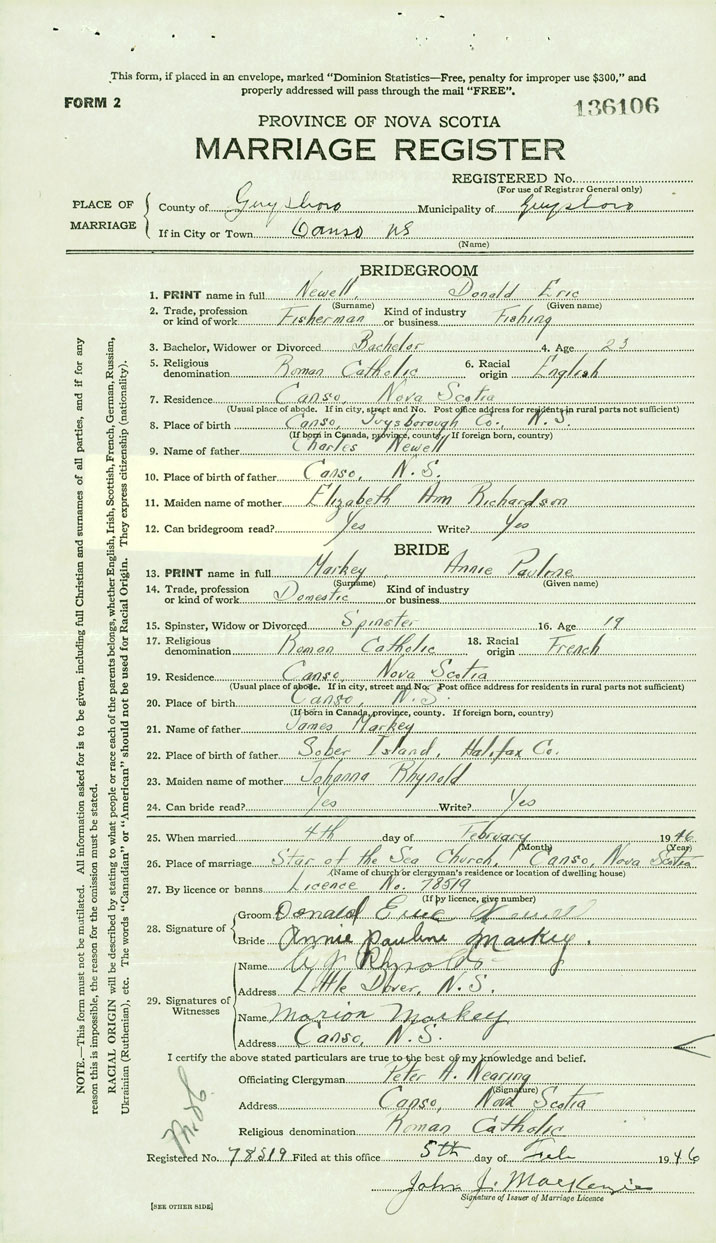 This form, if placed in an envelope, marked “Dominion Statistics—Free, penalty for improper use $300,” and
properly addressed will pass through the mail “FREE”.
FORM 2
136106
PROVINCE OF NOVA SCOTIA
MARRIAGE REGISTER
REGISTERED No.
(For use of Registrar General only)
PLACE OF MARRIAGE
County of Guysboro Municipality of Guysboro
If in City or Town Canso NS
(Name)
BRIDEGROOM
1. PRINT name in full Newell, Donald Eric
(Surname) (Given name)
2. Trade, profession or kind of work Fisherman Kind of industry or business Fishing
3. Bachelor, Widower or Divorced Bachelor 4. Age 23
5. Religious denomination Roman Catholic 6. Racial origin English
7. Residence Canso, Nova Scotia
(Usual place of abode. If in city, street and No. Post office address for residents in rural parts not sufficient)
8. Place of birth Canso, Guysborough Co., N.S.
(If born in Canada, province, county. If foreign born, country)
9. Name of father Charles Newell
10. Place of birth of father Canso, N.S.
11. Maiden name of mother Elizabeth Ann Richardson
12. Can bridegroom read? Yes Write? Yes
BRIDE
13. PRINT name in full Markey, Annie Pauline
(Surname) (Given name)
14. Trade, profession or kind of work Domestic Kind of industry or business
15. Spinster, Widow or Divorced Spinster 16. Age 19
17. Religious denomination Roman Catholic 18. Racial origin French
19. Residence Canso, Nova Scotia
(Usual place of abode. If in city, street and No. Post office address for residents in rural parts not sufficient)
20. Place of birth Canso, N.S.
(If born in Canada, province, county. If foreign born, country)
21. Name of father James Markey
22. Place of birth of father Sober Island, Halifax Co.
23. Maiden name of mother Johanna Rhynold
24. Can bride read? Yes Write? Yes
25. When married 4th day of February 1946
(Month) (Year)
26. Place of marriage Star of the Sea Church, Canso, Nova Scotia
(Name of church or clergyman's residence or location of dwelling house)
27. By licence or banns Licence No. 78519
(If by licence, give number)
28. Signature of
Groom Donald Eric Newell
Bride Annie Pauline Markey.
29. Signatures of Witnesses
Name Rhynold
Address Little Dover, N.S.
Name Marion Markey
Address Canso, N.S.
I certify the above stated particulars are true to the best of my knowledge and belief.
Officiating Clergyman Peter A. Nearing
(Signature)
Address Canso, Nova Scotia
Religious denomination Roman Catholic
Registered No. 78519 Filed at this office 5th day of Feb 1946
John J. MacKenzie
Signature of Issuer of Marriage Licence
[SEE OTHER SIDE]
NOTE.—This form must not be mutilated. All information asked for is to be given, including full Christian and surnames of all parties, and if for any
reason this is impossible, the reason for the omission must be stated.
RACIAL ORIGIN will be described by stating to what people or race each of the parents belongs, whether English, Irish, Scottish, French, German, Russian,
Ukrainian (Ruthenian), etc. The words “Canadian” or “American” should not be used for Racial Origin. They express citizenship (nationality).